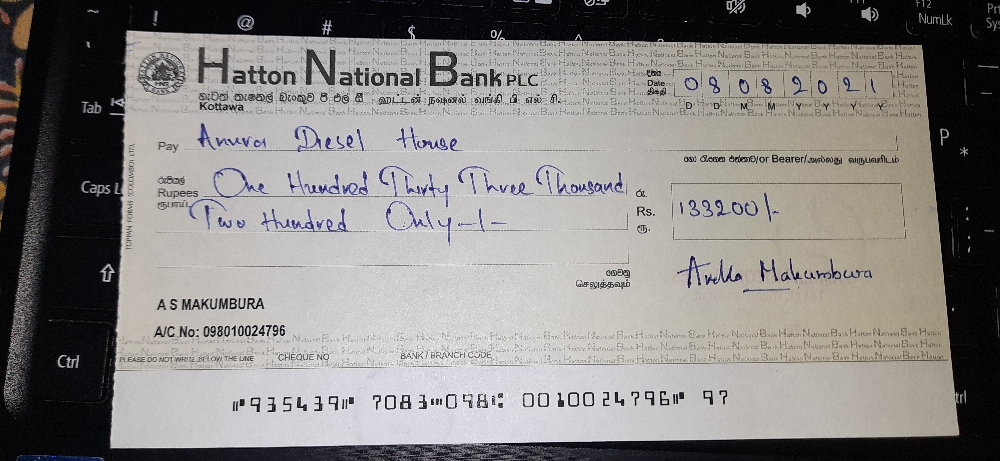 Hatton National Bank PLC
හැටන් නැෂනල් බැංකුව පී එල් සී ஹட்டன் நஷனல் வங்கி பி. எல். சி.
Kottawa
දිනය
Date
திகதி
0 8 0 8 2 0 2 1
D D M M Y Y Y Y
Pay Anura Diesel House
හෝ රැගෙන එන්නාට/or Bearer/அல்லது வருபவரிடம்
රුපියල්
Rupees
ரூபாய்
One Hundred Thirty Three Thousand
Two Hundred Only-/-
රු.
Rs.
ரூ.
133200/-
ගෙවනු
செலுத்தவும்
Makumbura
A S MAKUMBURA
A/C No: 098010024796
PLEASE DO NOT WRITE BELOW THE LINE CHEQUE NO BANK / BRANCH CODE
⑈935439⑈ 7083⑉098⑆ 0010024796⑈ 97
TOPPAN FORMS (COLOMBO) LTD.
~ ! @ # $ % ^
Tab
Caps L
Ctrl
P
*
F12
NumLk
Prt
Sys
trl